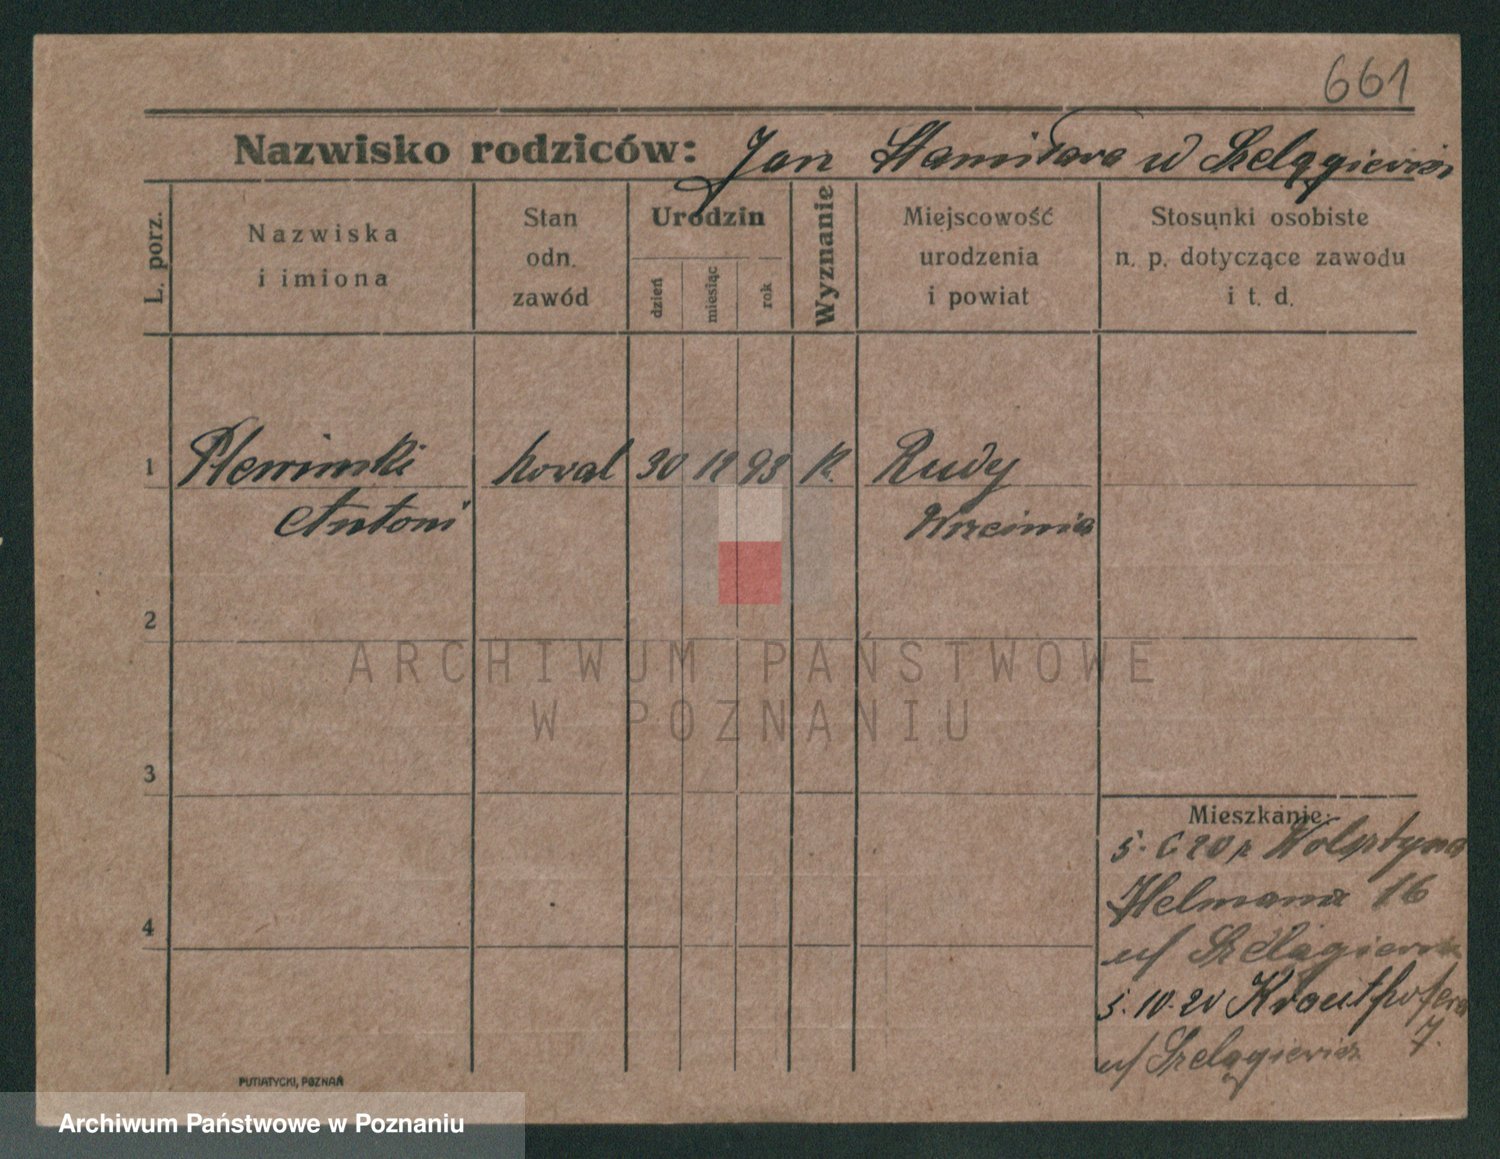 661
Nazwisko rodziców: Jan Stanisława w Szelągiewicz
L. porz.
Nazwiska
i imiona
Stan
odn.
zawód
Urodzin
dzień
miesiąc
rok
Wyznanie
Miejscowość
urodzenia
i powiat
Stosunki osobiste
n. p. dotyczące zawodu
i t. d.
1 Plewinski kowal 30 12 93 K. Rudy
Antoni Wrzesnia
2
ARCHIWUM PAŃSTWOWE
W POZNANIU
3
Mieszkanie:
5. 6 20 r Wolsztyna
16
u/ Szelągiewicz
4
5. 10. 20 Krauthofera
7.
u/ Szelągiewicz
PUTIATYCKI, POZNAŃ
Archiwum Państwowe w Poznaniu